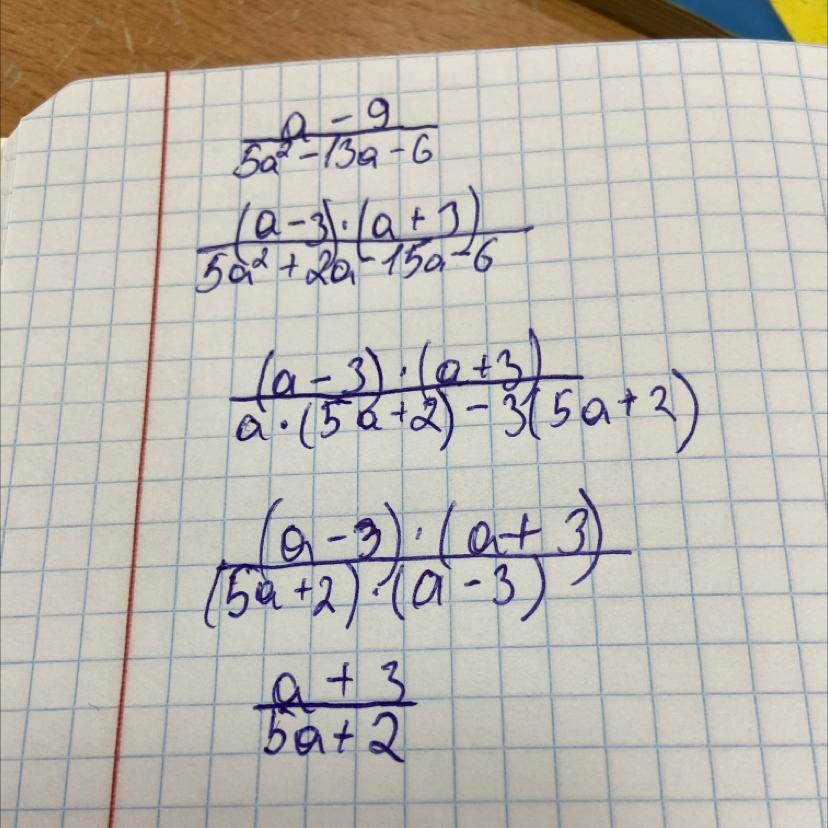 a - 9
5a² - 13a - 6
(a - 3) · (a + 3)
5a² + 2a - 15a - 6
(a - 3) · (a + 3)
a · (5a + 2) - 3(5a + 2)
(a - 3) · (a + 3)
(5a + 2) · (a - 3)
a + 3
5a + 2